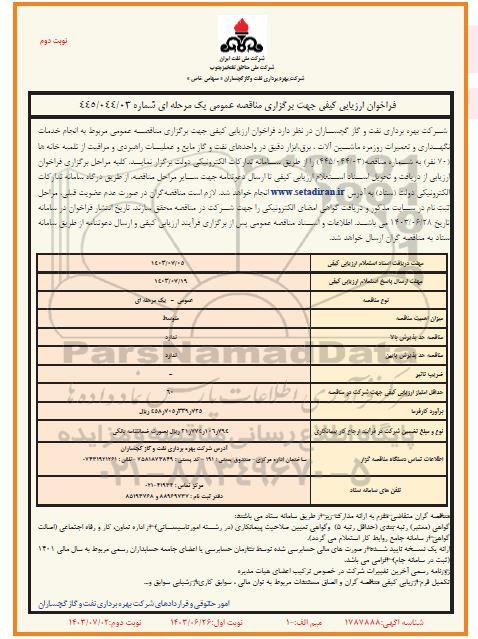 نوبت دوم
شرکت ملی نفت ایران
شرکت ملی مناطق نفتخیز جنوب
شرکت بهره برداری نفت و گاز گچساران « سهامی خاص »
فراخوان ارزیابی کیفی جهت برگزاری مناقصه عمومی یک مرحله ای شماره ۴۴۵/۰۴۴/۰۳
شرکت بهره برداری نفت و گاز گچساران در نظر دارد فراخوان ارزیابی کیفی جهت برگزاری مناقصه عمومی مربوط به انجام خدمات
نگهداری و تعمیرات روزمره ماشین آلات ، برق،ابزار دقیق در واحدهای نفت و گاز مایع و عملیات راهبری و مراقبت از تلمبه خانه ها
(۷۰ نفر) به شماره مناقصه(۴۴۵/۰۴۴/۰۳) را از طریق سامانه تدارکات الکترونیکی دولت برگزار نماید. کلیه مراحل برگزاری فراخوان
ارزیابی از دریافت و تحویل اسناد استعلام ارزیابی کیفی تا ارسال دعوتنامه جهت سایر مراحل مناقصه، از طریق درگاه سامانه تدارکات
الکترونیکی دولت (ستاد) به آدرس www.setadiran.ir انجام خواهد شد. لازم است مناقصه گران در صورت عدم عضویت قبلی، مراحل
ثبت نام در سایت مذکور و دریافت گواهی امضای الکترونیکی را جهت شرکت در مناقصه محقق سازند. تاریخ انتشار فراخوان در سامانه
تاریخ ۱۴۰۳/۰۶/۲۸ می باشد. اطلاعات و اسناد مناقصه عمومی پس از برگزاری فرآیند ارزیابی کیفی و ارسال دعوتنامه از طریق سامانه
ستاد به مناقصه گران ارسال خواهد شد.
مهلت دریافت اسناد استعلام ارزیابی کیفی ۱۴۰۳/۰۷/۰۵
مهلت ارسال پاسخ استعلام ارزیابی کیفی ۱۴۰۳/۰۷/۱۹
نوع مناقصه عمومی - یک مرحله ای
میزان اهمیت مناقصه متوسط
مناقصه حد پذیرش بالا ندارد
مناقصه حد پذیرش پایین ندارد
ضریب تاثیر -
حداقل امتیاز ارزیابی کیفی جهت شرکت در مناقصه ۶۰
برآورد کارفرما ۴۵۸,۷۰۵,۳۳۹,۷۳۵ ریال
نوع و مبلغ تضمین شرکت در فرآیند ارجاع کار پیمانکاری ۲۱,۷۷۴,۱۰۶,۷۹۴ ریال بصورت ضمانتنامه بانکی
اطلاعات تماس دستگاه مناقصه گزار آدرس شرکت بهره برداری نفت و گاز گچساران
ساختمان اداره مرکزی - صندوق پستی : ۱۹۱ - کد پستی :
تلفن های سامانه ستاد مرکز تماس : ۴۱۹۳۴-۰۲۱
دفتر ثبت نام : ۸۸۹۶۹۷۳۷ و ۸۵۱۹۳۷۶۸
مناقصه گران متقاضی ملزم به ارائه مدارک زیر از طریق سامانه ستاد می باشند:
گواهی (معتبر) رتبه بندی (حداقل رتبه ۵) وگواهی تعیین صلاحیت پیمانکاری (در رشته امور تاسیساتی) از اداره تعاون، کار و رفاه اجتماعی (اصالت
گواهی از سامانه جامع روابط کار استعلام می گردد).
ارائه یک نسخه تایید شده از صورت های مالی حسابرسی شده توسط سازمان حسابرسی یا اعضای جامعه حسابداران رسمی مربوط به سال مالی ۱۴۰۱
(ثبت در سامانه جام) الزامی می باشد.
روزنامه رسمی آخرین تغییرات شرکت در خصوص ترکیب اعضای هیات مدیره
تکمیل فرم ارزیابی کیفی مناقصه گران و الصاق مستندات مربوط به توان مالی ، سوابق کاری، ارزشیابی سوابق و...
امور حقوقی و قراردادهای شرکت بهره برداری نفت و گاز گچساران
شناسه آگهی: ۱۷۸۷۸۸۸ میم الف: ۱۰ نوبت اول: ۱۴۰۳/۰۶/۲۶ نوبت دوم: ۱۴۰۳/۰۷/۰۲
ParsNamadData